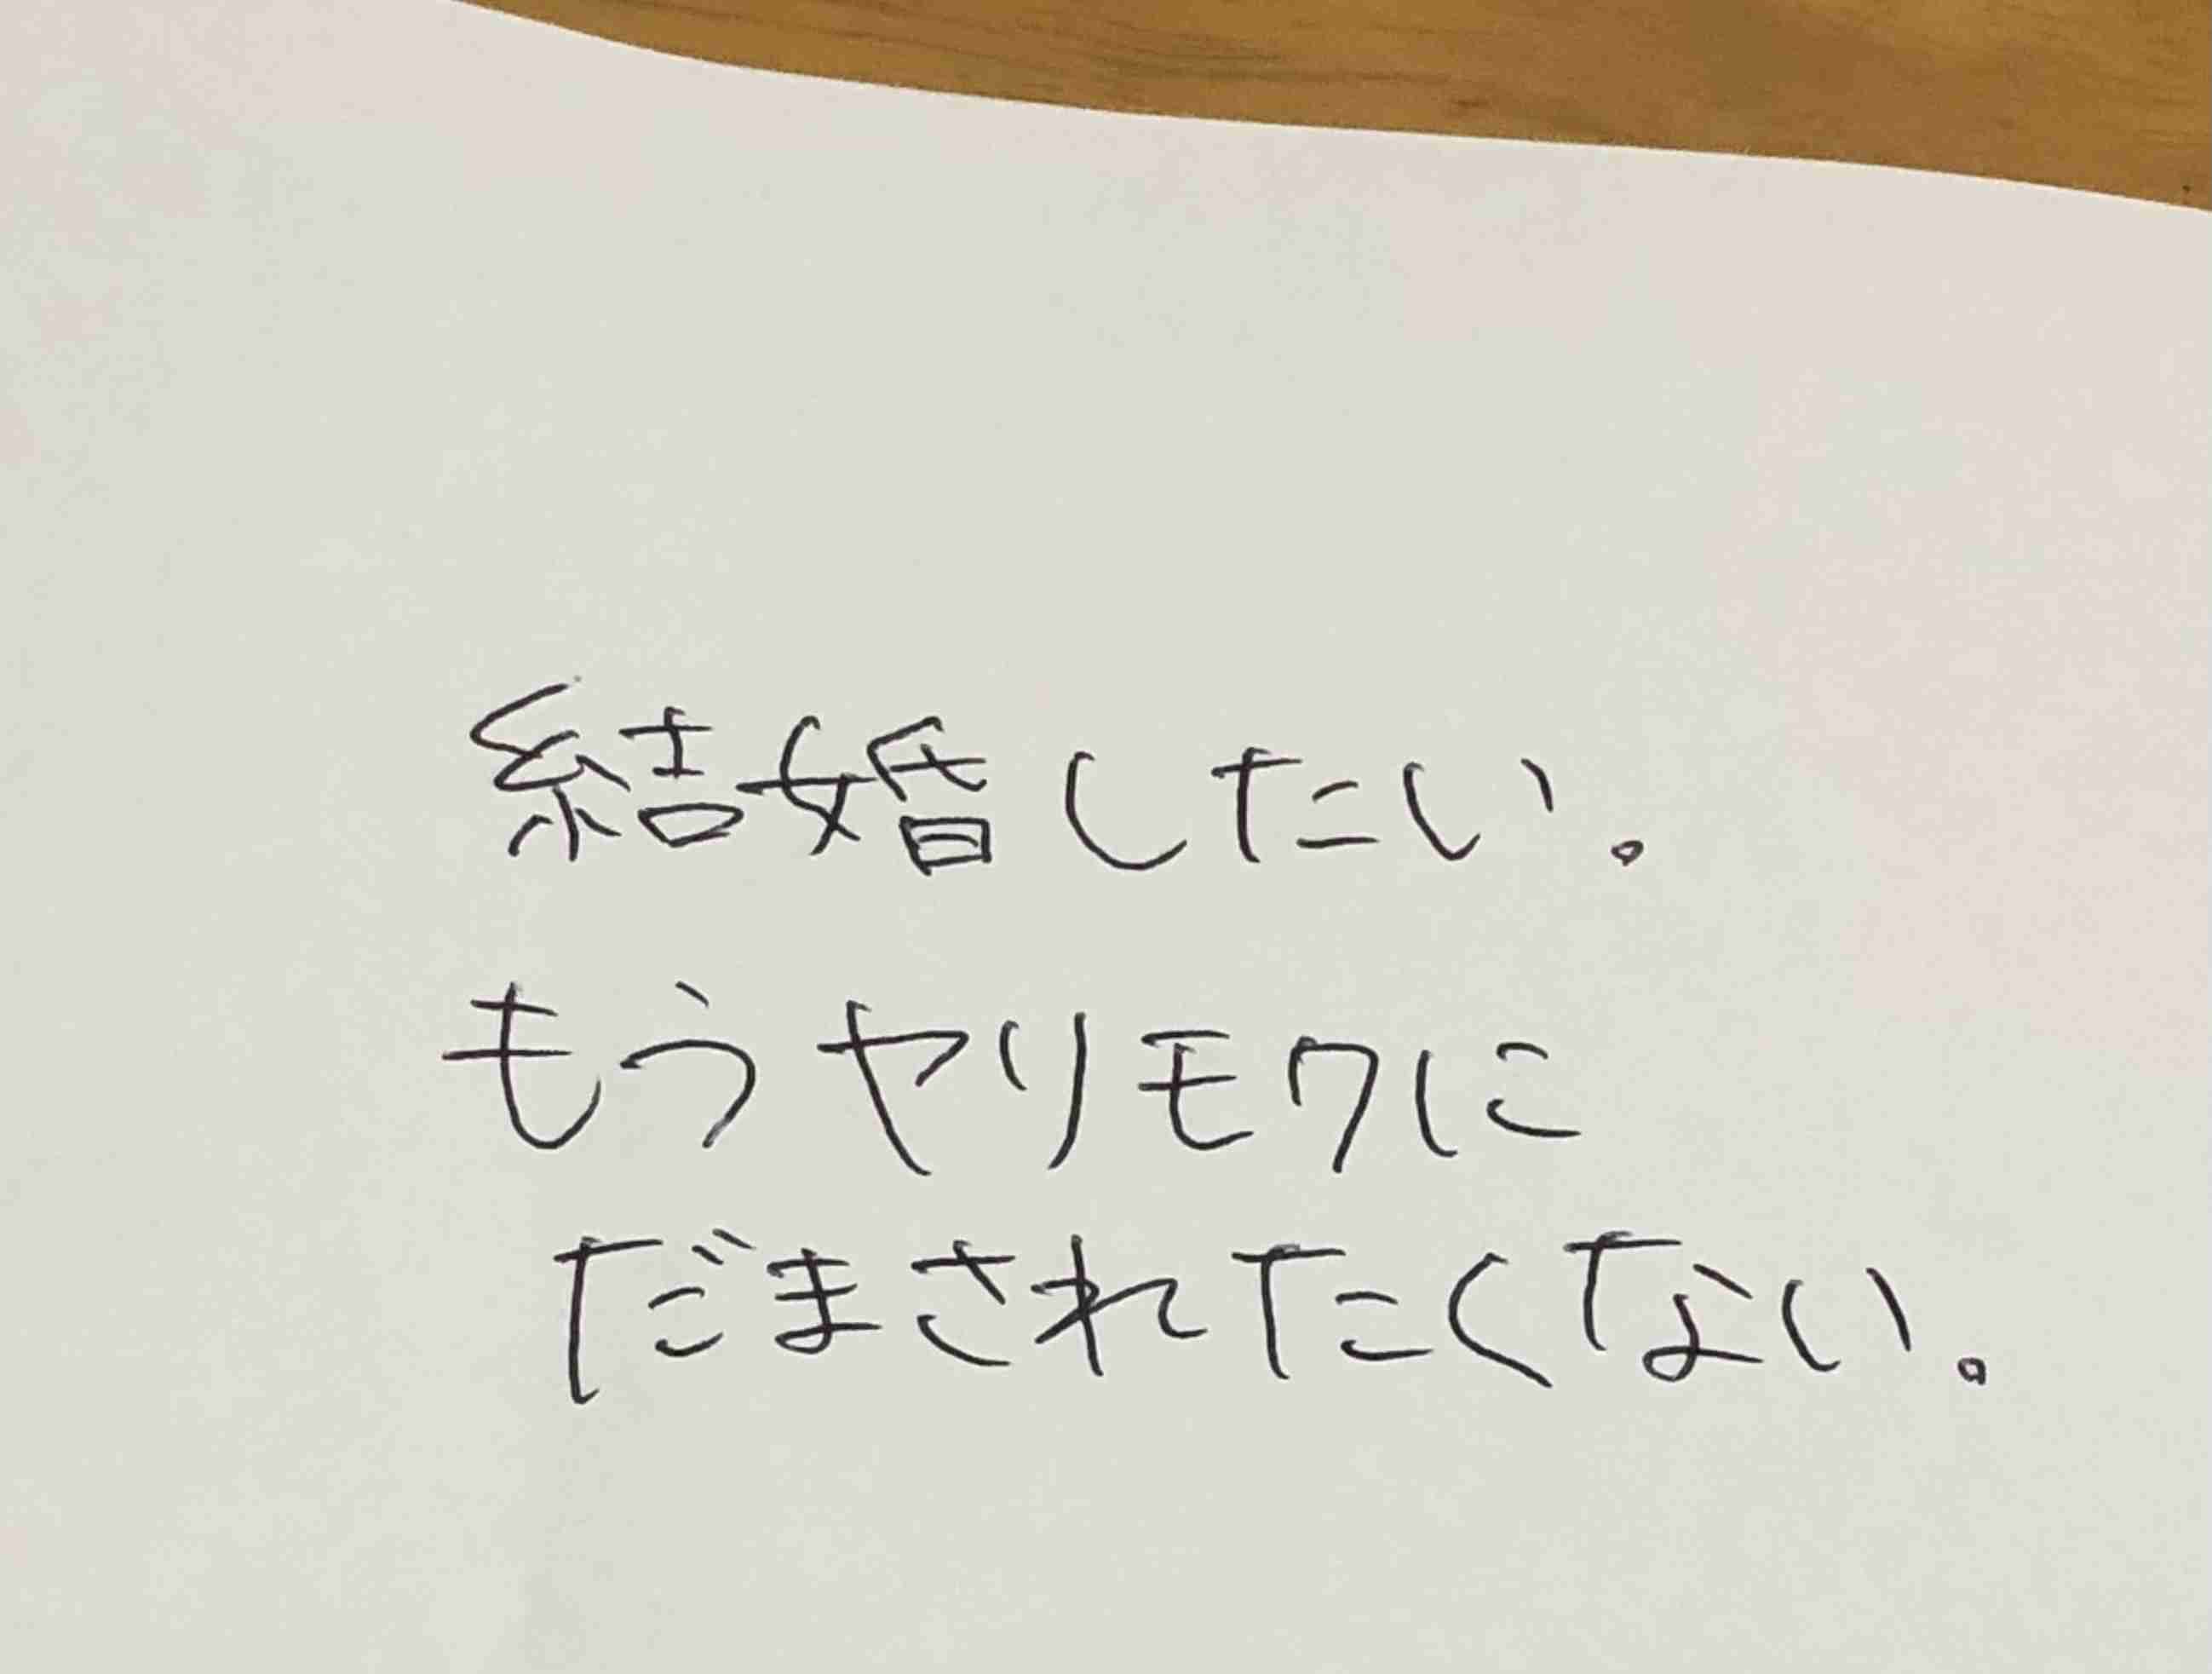 結婚したい。
もうヤリモクに
だまされたくない。